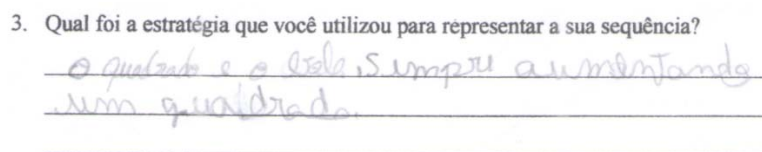 3. Qual foi a estratégia que você utilizou para representar a sua sequência?
O quadrado e a bola, sempre aumentando
um quadrado.